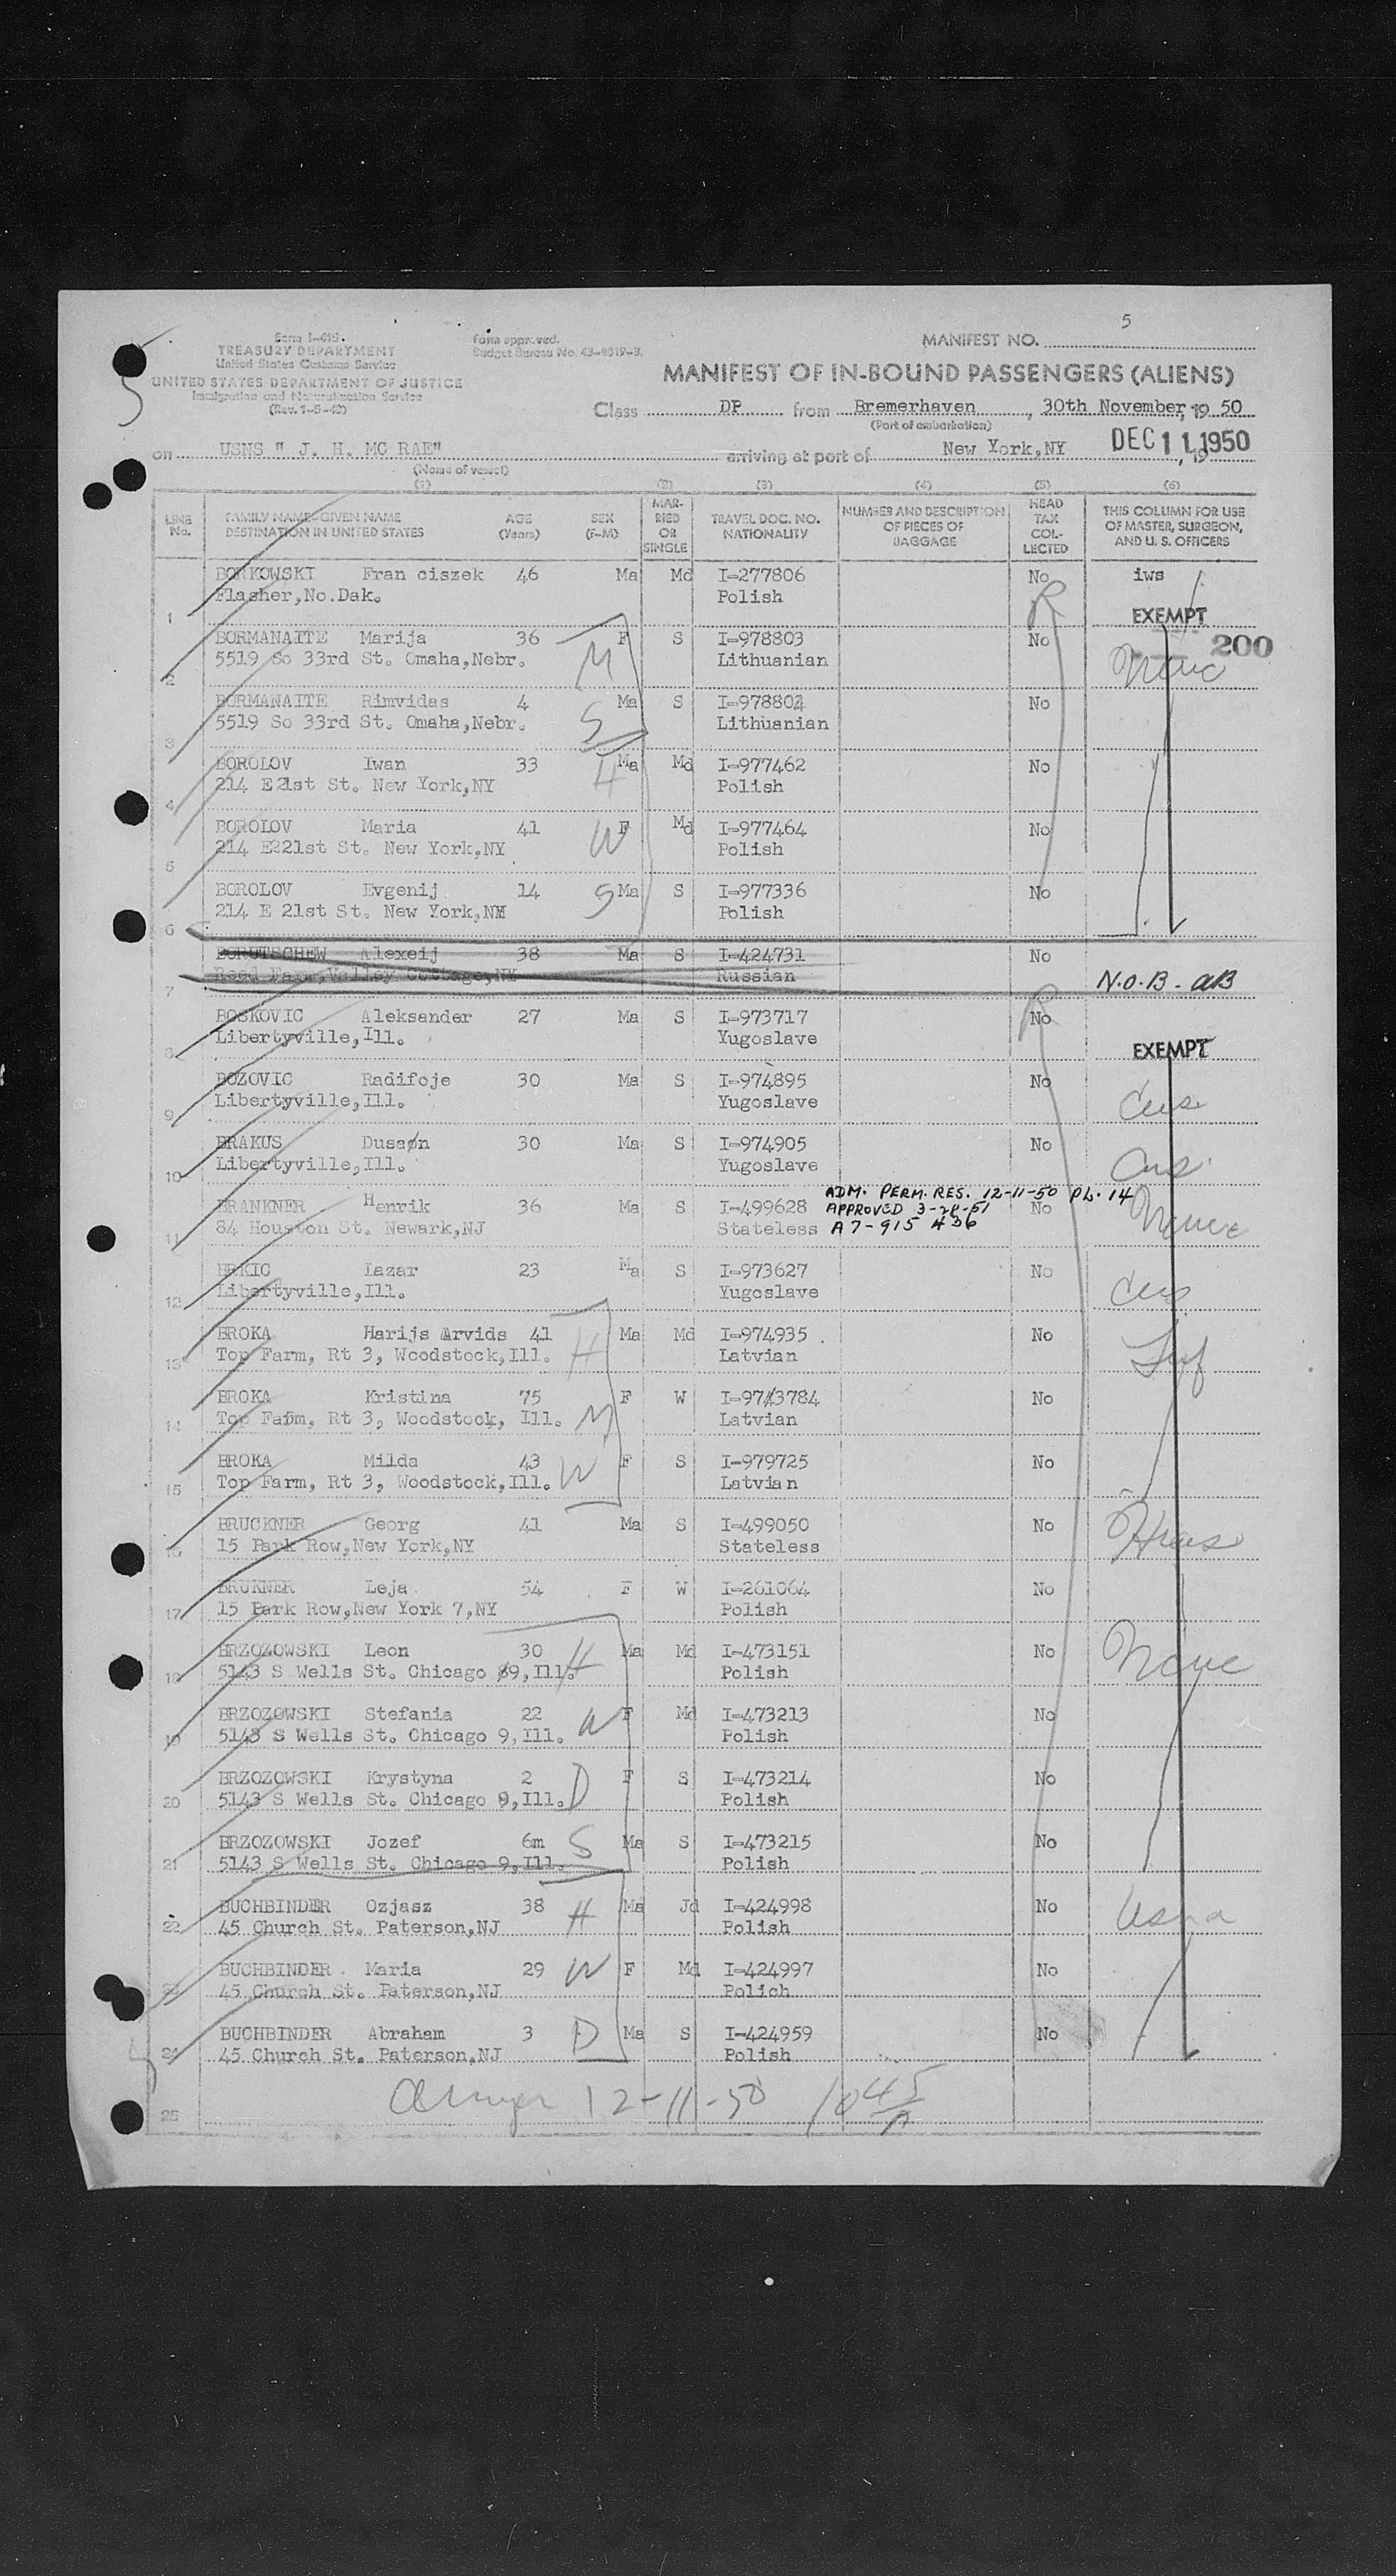 5
MANIFEST NO.
Form I-415
TREASURY DEPARTMENT
United States Customs Service
UNITED STATES DEPARTMENT OF JUSTICE
Immigration and Naturalization Service
Form approved.
Budget Bureau No. 43-R019-3.
MANIFEST OF IN-BOUND PASSENGERS (ALIENS)
Class DP from Bremerhaven, 30th November, 19 50
(Port of embarkation)
on USNS " J. H. MC RAE" arriving at port of New York,NY DEC 11 1950, 19
(Name of vessel)
(1) (2) (3) (4) (5) (6)
LINE No. FAMILY NAME-GIVEN NAME DESTINATION IN UNITED STATES AGE (Years) SEX (F-M) MARRIED OR SINGLE TRAVEL DOC. NO. NATIONALITY NUMBER AND DESCRIPTION OF PIECES OF BAGGAGE HEAD TAX COLLECTED THIS COLUMN FOR USE OF MASTER, SURGEON, AND U. S. OFFICERS
BORKOWSKI Fran ciszek 46 Ma Md I-277806 No iws
1 Flasher,No.Dak. Polish EXEMPT
BORMANAITE Marija 36 F S I-978803 No 200
2 5519 So 33rd St. Omaha,Nebr. M Lithuanian
BORMANAITE Rimvidas 4 Ma S I-978802 No
3 5519 So 33rd St. Omaha,Nebr. S Lithuanian
BOROLOV Iwan 33 H Ma Md I-977462 No
4 214 E21st St. New York,NY Polish
BOROLOV Maria 41 W F Md I-977464 No
5 214 E221st St. New York,NY Polish
BOROLOV Evgenij 14 S Ma S I-977336 No
6 214 E 21st St. New York,NY Polish
BORUTSCHEW Alexeij 38 Ma S I-424731 No
7 Reed Farm,Valley Cottage,NY Russian N.O.B - aB
BOSKOVIC Aleksander 27 Ma S I-973717 No
8 Libertyville,Ill. Yugoslave EXEMPT
BOZOVIC Radifoje 30 Ma S I-974895 No
9 Libertyville,Ill. Yugoslave
BRAKUS Dusan 30 Ma S I-974905 No
10 Libertyville,Ill. Yugoslave
BRANKNER Henrik 36 Ma S I-499628 ADM. PERM. RES. 12-11-50 PL. 14 No
APPROVED 3-28-51
11 84 Houston St. Newark,NJ Stateless A7-915 436
BRKIC Lazar 23 Ma S I-973627 No
12 Libertyville,Ill. Yugoslave
BROKA Harijs Arvids 41 H Ma Md I-974935 No
13 Top Farm, Rt 3, Woodstock,Ill. Latvian
BROKA Kristina 75 F W I-973784 No
14 Top Farm, Rt 3, Woodstock, Ill. M Latvian
BROKA Milda 43 F S I-979725 No
15 Top Farm, Rt 3, Woodstock,Ill. W Latvian
BRUCKNER Georg 41 Ma S I-499050 No
16 15 Park Row,New York,NY Stateless
BRUKNER Leja 54 F W I-261064 No
17 15 Park Row,New York 7,NY Polish
BRZOZOWSKI Leon 30 H Ma Md I-473151 No
18 5143 S Wells St. Chicago 9,Ill. Polish
BRZOZOWSKI Stefania 22 W F Md I-473213 No
19 5143 S Wells St. Chicago 9,Ill. Polish
BRZOZOWSKI Krystyna 2 F S I-473214 No
20 5143 S Wells St. Chicago 9,Ill. D Polish
BRZOZOWSKI Jozef 6m S Ma S I-473215 No
21 5143 S Wells St. Chicago 9,Ill. Polish
BUCHBINDER Ozjasz 38 H Ma Jd I-424998 No
22 45 Church St. Paterson,NJ Polish
BUCHBINDER Maria 29 W F Md I-424997 No
23 45 Church St. Paterson,NJ Polich
BUCHBINDER Abraham 3 D Ma S I-424959 No
24 45 Church St. Paterson,NJ Polish
25 12-11-50